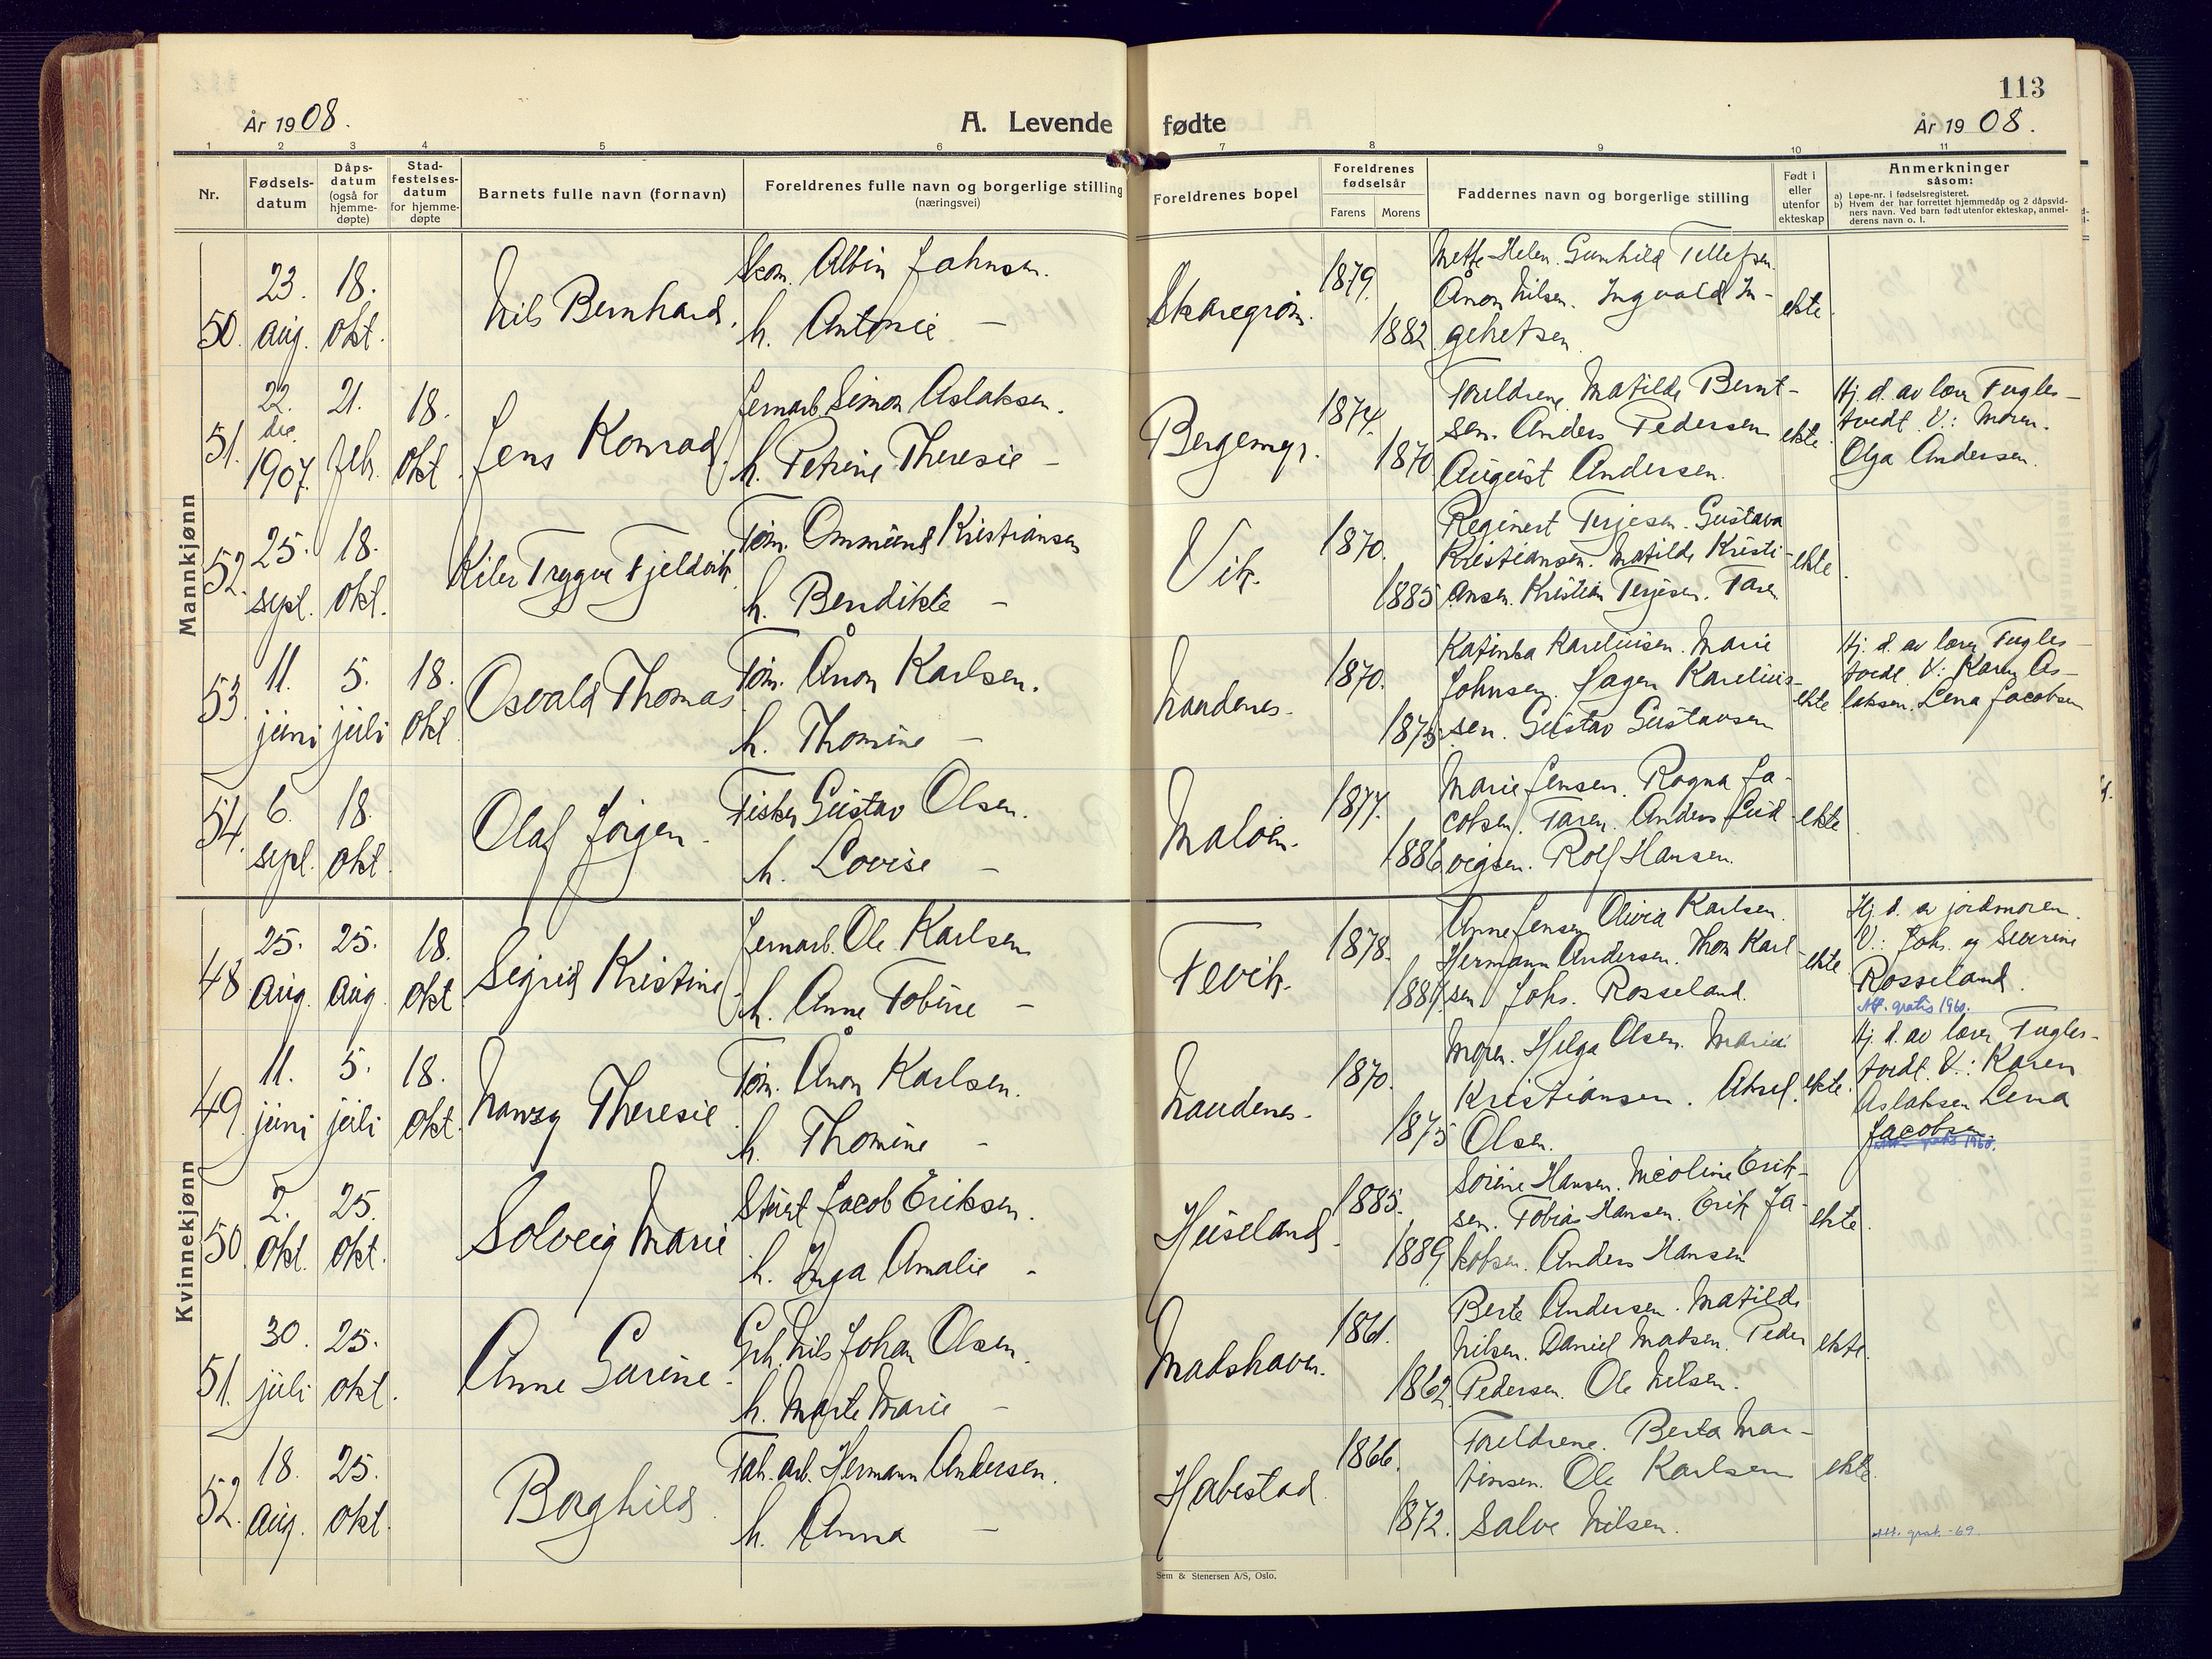 113
År 1908.
A. Levende fødte
År 1908.
1 2 3 4 5 6 7 8 9 10 11
Nr.
Fødsels-
datum
Dåps-
datum
(også for
hjemme-
døpte)
Stad-
festelses-
datum
for hjemme-
døpte
Barnets fulle navn (fornavn)
Foreldrenes fulle navn og borgerlige stilling
(næringsvei)
Foreldrenes bopel
Foreldrenes
fødselsår
Farens Morens
Faddernes navn og borgerlige stilling
Født i
eller
utenfor
ekteskap
Anmerkninger
såsom:
a) Løpe-nr. i fødselsregisteret.
b) Hvem der har forrettet hjemmedåp og 2 dåpsvid-
ners navn. Ved barn født utenfor ekteskap, anmel-
derens navn o. l.
Mannkjønn
50.
23.
aug.
18.
okt.
Nils Bernhard.
Skom. Albin Jahnsen.
h. Antonie —
Skaregrøm.
1879.
1882
Mette Helen. Gunhild Tellefsen.
Ånon Nilsen. Ingvald In-
gebretsen.
ekte.
51.
22.
des.
1907.
21.
febr.
18.
okt.
Jens Konrad.
Jernarb. Simon Aslaksen.
h. Petrine Theresie —
Bergemyr.
1874.
1870
Foreldrene. Matilde Bernt-
sen. Anders Pedersen
August Andersen.
ekte.
Hj. d. av lærer Fugles-
tvedt. V.: Moren.
Olga Andersen.
52.
25.
sept.
18.
okt.
Kiler Trygve Fjeldvik
Tøm. Ommund Kristiansen
h. Bendikte —
Vik.
1870.
1885
Reginert Terjesen. Gustava
Kristiansen. Matilde Kristi-
ansen. Kristian Terjesen. Faren
ekte.
53.
11.
juni
5.
juli
18.
okt.
Osvald Thomas
Tøm. Ånon Karlsen.
h. Thomine —
Naudenes.
1870.
1875
Katinka Kareliusen. Marie
Johnsen. Jagen Karelius-
sen. Gustav Gustavsen
ekte.
Hj. d. av lærer Fugles-
tvedt. V: Karen As-
laksen. Lena Jacobsen
54.
6.
sept.
18.
okt.
Olaf Jørgen.
Fisker Gustav Olsen.
h. Lovise —
Maløen.
1877.
1886
Marie Jensen. Ragna Ja-
cobsen. Faren. Anders Lud-
vigsen. Rolf Hansen.
ekte.
Kvinnekjønn
48
25.
aug.
25.
aug
18.
okt
Sigrid Kristine
Jernarb. Ole Karlsen
h. Anne Tobine —
Fevik.
1878.
1884.
Anne Jensen. Olivia Karlsen.
Hermann Andersen. Thom Karl-
sen. Johs. Rosseland.
ekte.
Hj. d. av jordmoren.
V.: Johs. og Severine
Rosseland.
Att. gratis 1960.
49.
11.
juni
5.
juli
18.
okt.
Nanzy Theresie
Tøm. Ånon Karlsen.
h. Thomine —
Naudenes.
1870.
1875
Moren. Helga Olsen. Marie
Kristiansen. Aksel
Olsen.
ekte.
Hj. d. av lærer Fugles-
tvedt. V.: Karen
Aslaksen Lena
Jacobsen.
50.
2.
okt.
25.
okt.
Solveig Marie
Stuert Jacob Eriksen.
h. Inga Amalie —
Huseland.
1885.
1889
Sørine Hansen. Nicoline Erik-
sen. Tobias Hansen. Erik Ja-
kobsen. Anders Hansen
ekte.
51.
30.
juli
25.
okt.
Anne Gurine.
Grh. Nils Johan Olsen.
h. Marte Marie —
Madshaven.
1861.
1862.
Berte Andersen. Matilde
Nilsen. Daniel Madsen. Peder
Pedersen. Ole Nilsen.
ekte.
52.
18.
aug.
25.
okt.
Borghild.
Fab. arb. Hermann Andersen.
h. Anna —
Habestad
1866.
1872.
Foreldrene. Berta Mar-
tinsen. Ole Karlsen
Salve Nilsen.
ekte.
Att. grat. -69.
Sem & Stenersen A/S, Oslo.